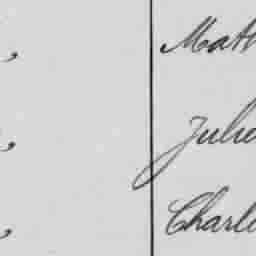 , Math
, Julia
, Charl